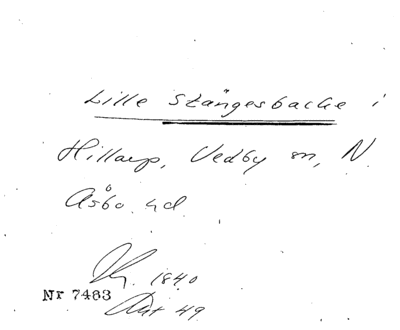 Lille Stängesbacke i
Hillarp, Vedby sn, N.
Åsbo hd.
1840
Nr 7463
Akt 49